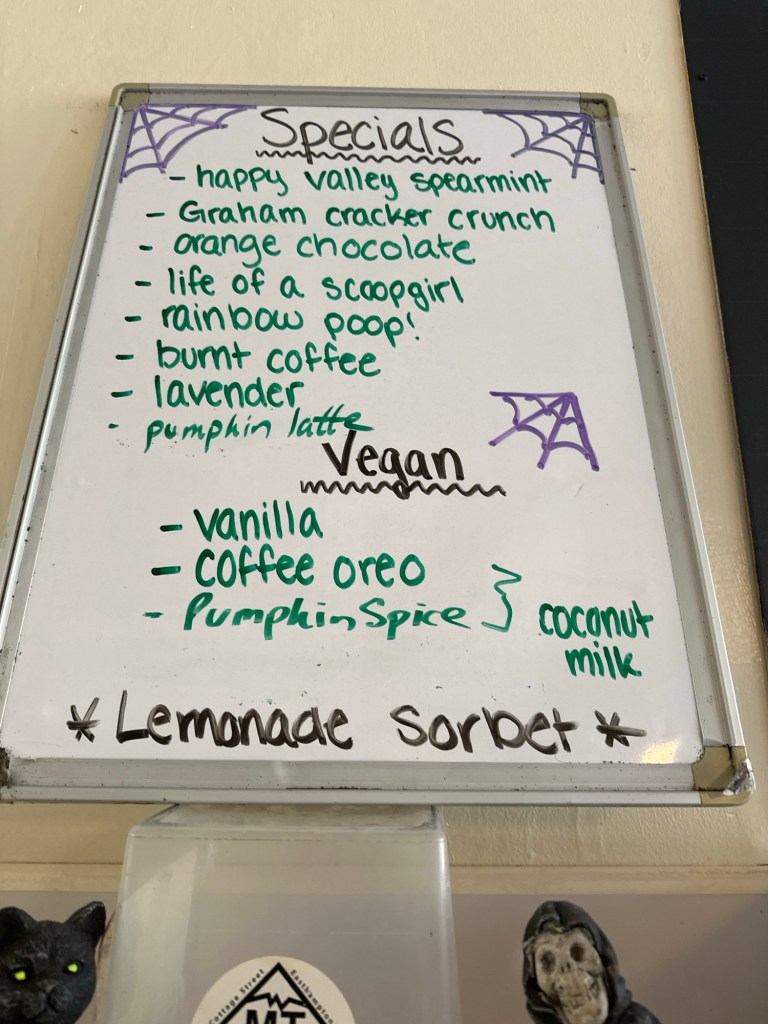 Specials
- happy valley spearmint
- Graham cracker crunch
- orange chocolate
- life of a scoopgirl
- rainbow poop!
- burnt coffee
- lavender
- pumpkin latte
Vegan
- vanilla
- coffee oreo
- Pumpkin Spice } coconut
milk
* Lemonade Sorbet *
Cottage Street Easthampton
MT